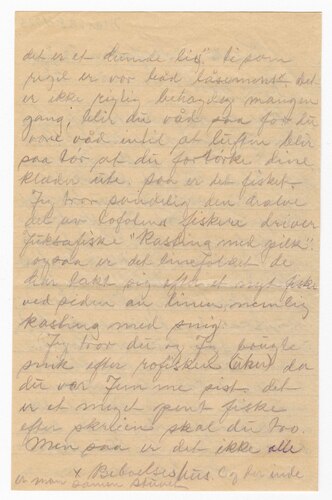 det er et hunde liv", ti som
regel er vor baad det
er ikke rigtig behagelig mangen
gang, blir du vaad saa for du
være våd intil at luften blir
saa tør at du fortørke dine
klæder ute, saa er det fisket.
Jeg tror sandelig den
det av Lofotens fiskere driver
Juksafiske "Kasting med pilk"
ogsaa er det linefolket de
har takt sig efter et nyt fiske
ved siden av linen, nemlig
kasting med snig.
Jeg tror du og Jeg brugte
snik efter rofisken (aker) da
du var Jem me sist, det
er et meget spent fiske
efter skreien skal du tro.
Men saa er det ikke alle
Beboelseshus. Og her inde
er man stuet